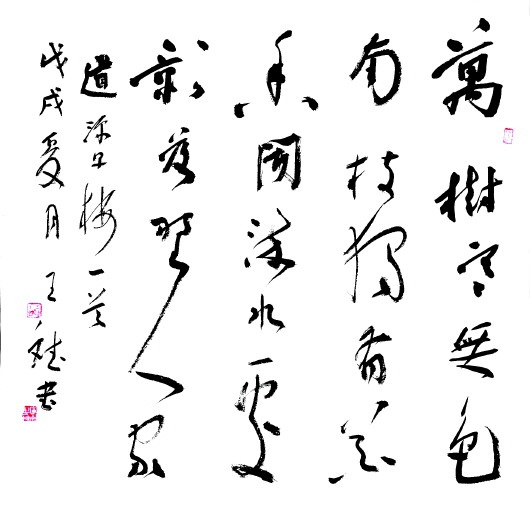 萬樹寒無色
南枝獨有花
香聞流水處
影落野人家
道源早梅一首
戊戌夏月 王 書